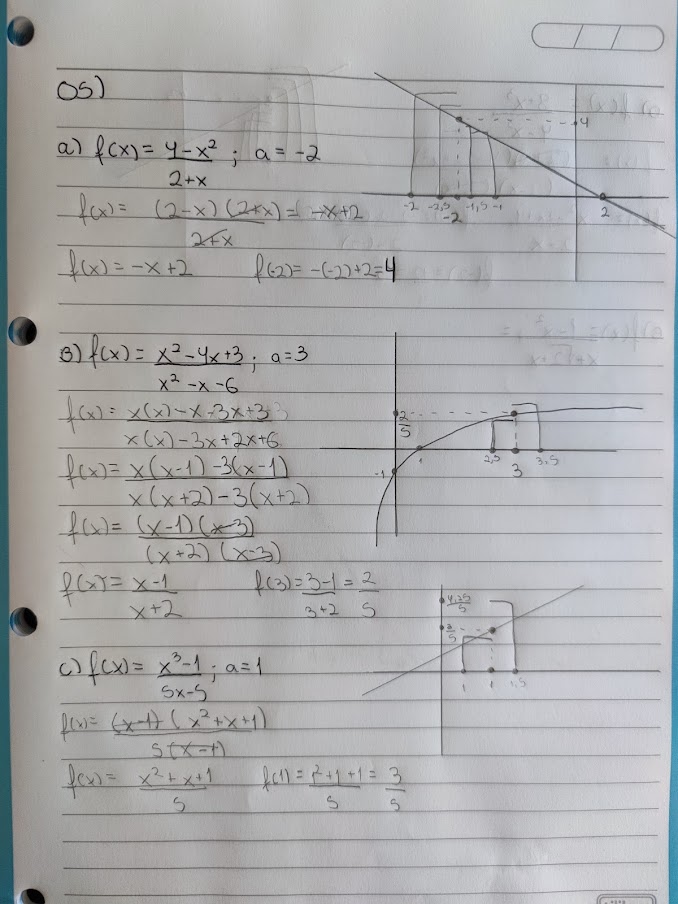 05)
a) f(x) = 4-x² ; a = -2
2+x
f(x) = (2-x)(2+x) = -x+2
2+x
f(x) = -x+2 f(-2) = -(-2)+2=4
4
-2 -2,5 -2 -1,5 -1 2
B) f(x) = x²-4x+3 ; a=3
x²-x-6
f(x) = x(x)-x-3x+3
x(x)-3x+2x+6
f(x) = x(x-1)-3(x-1)
x(x+2)-3(x+2)
f(x) = (x-1)(x-3)
(x+2)(x-3)
f(x) = x-1 f(3) = 3-1 = 2
x+2 3+2 5
2
5
-1 1 2,5 3 3,5
c) f(x) = x³-1 ; a=1
5x-5
f(x) = (x-1)(x²+x+1)
5(x-1)
f(x) = x²+x+1 f(1) = 1²+1+1 = 3
5 5 5
4,25
5
3
5
1 1 1,5